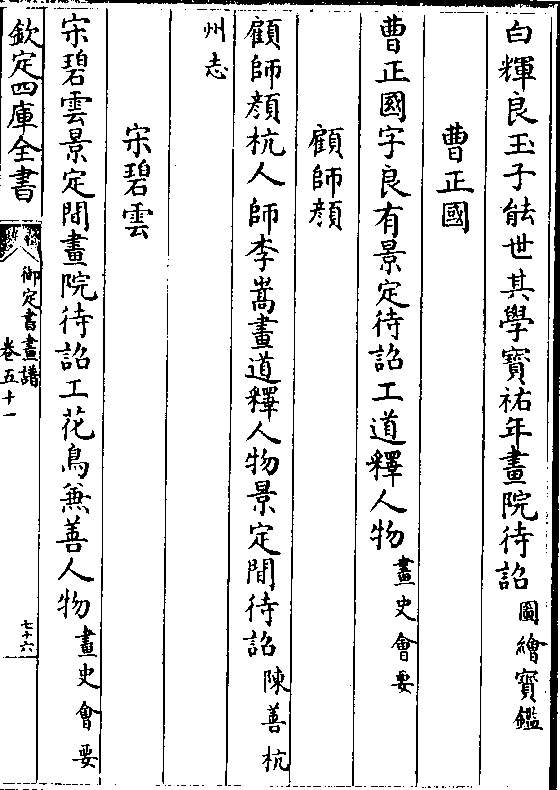 白輝良玉子能世其學寶祐年畫院待詔圖繪寶鑑
曹正國
曹正國字良有景定待詔工道釋人物畫史會要
顧師顔
顧師顔杭人師李嵩畫道釋人物景定間待詔陳善杭
州志
宋碧雲
宋碧雲景定間畫院待詔工花鳥兼善人物畫史會要
欽定四庫全書
御定書畫譜
卷五十一
七十六